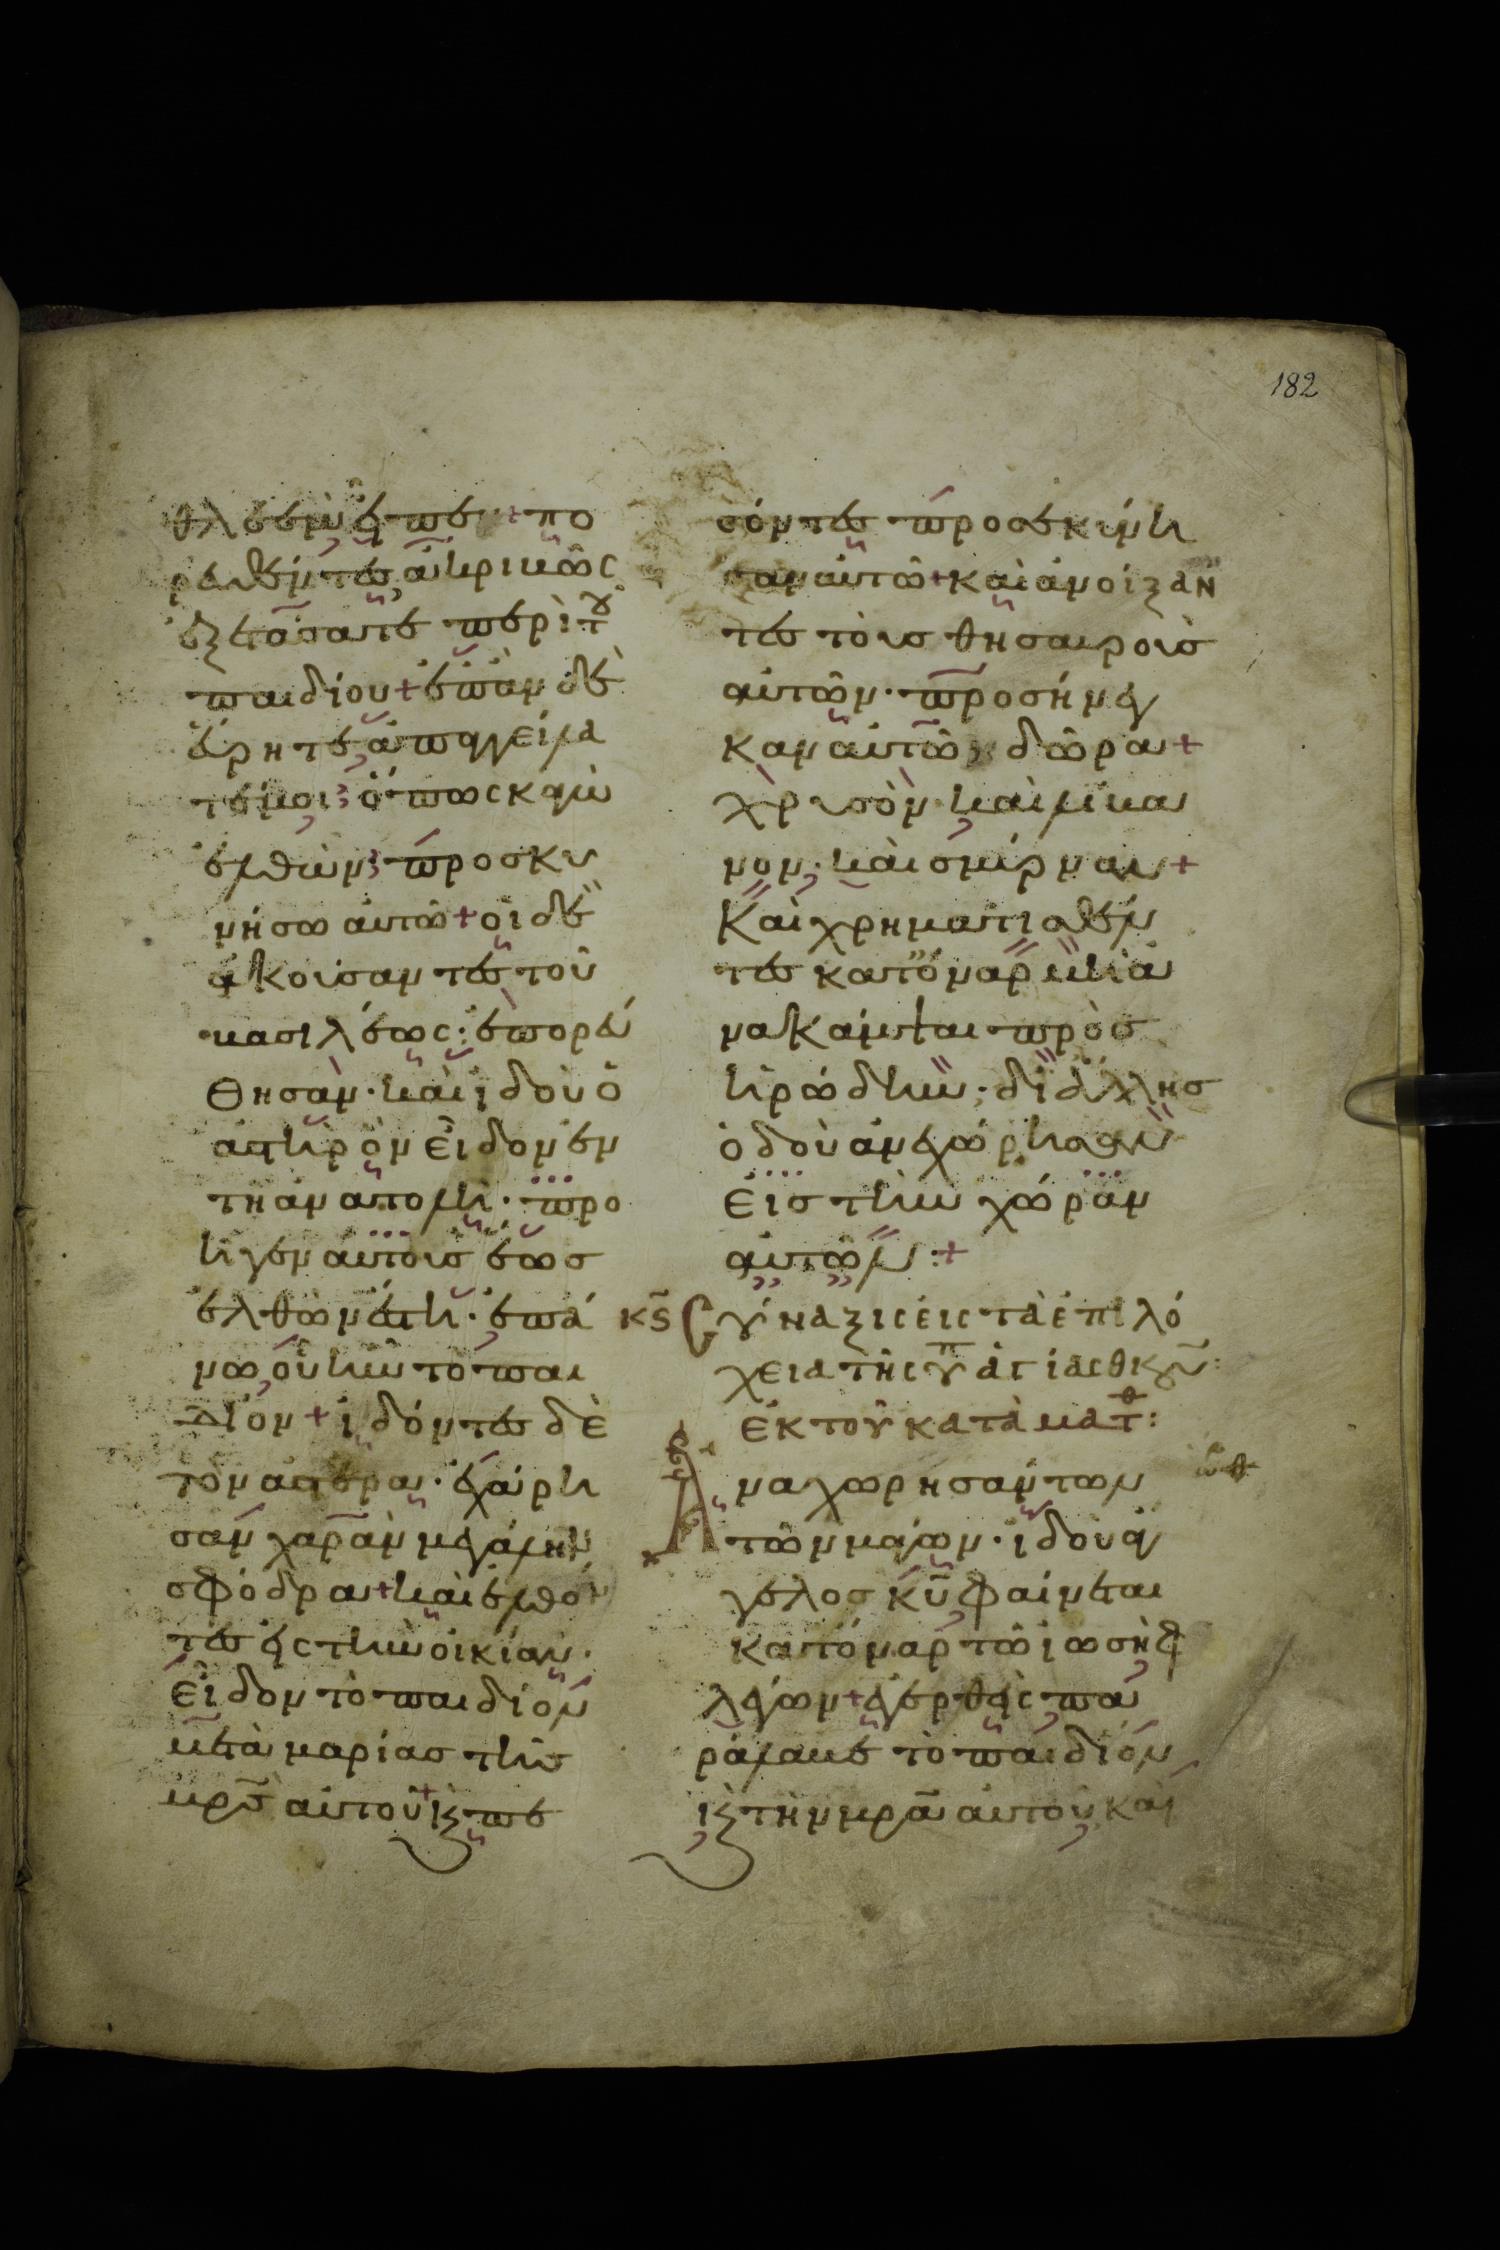 182
θλεὲμ εἶπε + πο
ρευθέντες ἀκριβῶς
ἐξετάσατε περὶ τοῦ
παιδίου + ἐπὰν δὲ
εὕρητε ἀπαγγείλα
τέ μοι· ὅπως κἀγὼ
ἐλθὼν· προσκυ
νήσω αὐτῶ + οἱ δὲ
ἀκούσαντες τοῦ
βασιλέως· ἐπορεύ
θησαν· καὶ ἰδοὺ ὁ
ἀστὴρ ὃν εἶδον ἐν
τῆ ἀνατολῆ· προ
ῆγεν αὐτοὺς ἕως
ἐλθὼν ἔστη· ἐπά
νω οὗ ἦν τὸ παι
δίον + ἰδόντες δὲ
τὸν ἀστέρα· ἐχάρη
σαν χαρὰν μεγάλην
σφόδρα + καὶ ἐλθόν
τες εἰς τὴν οἰκίαν·
εἶδον τὸ παιδίον
μετὰ μαρίας τῆς
μρ̅ς αὐτοῦ + ϗ πε
σόντες προσεκύνη
σαν αὐτῶ + καὶ ἀνοίξαν
τες τοὺς θησαυροὺς
αὐτῶν· προσήνεγ
καν αὐτῶ δῶρα +
χρυσὸν· καὶ λίβα
νον· καὶ σμύρναν +
Καὶ χρηματισθέν
τες κατ' ὄναρ μὴ ἀ
νακάμψαι πρὸς
ἡρώδην· δι' ἄλλης
ὁδοῦ ἀνεχώρησαν
εἰς τὴν χώραν
αὐτῶν :+
κϛ̅ Σύναξις εἰς τὰ ἐπιλό
χεια τῆς ὑπ ἁγίας θκου:
ἐκ τοῦ κατὰ ματθ:
Ἀναχωρησάντων
τῶν μάγων· ἰδοὺ ἄγ
γελος κ̅υ̅ φαίνεται
κατ' ὄναρ τῶ ἰωσὴφ
λέγων + ἐγερθεὶς πα
ράλαβε τὸ παιδίον
ϗ τὴν μρ̅α αὐτοῦ καὶ